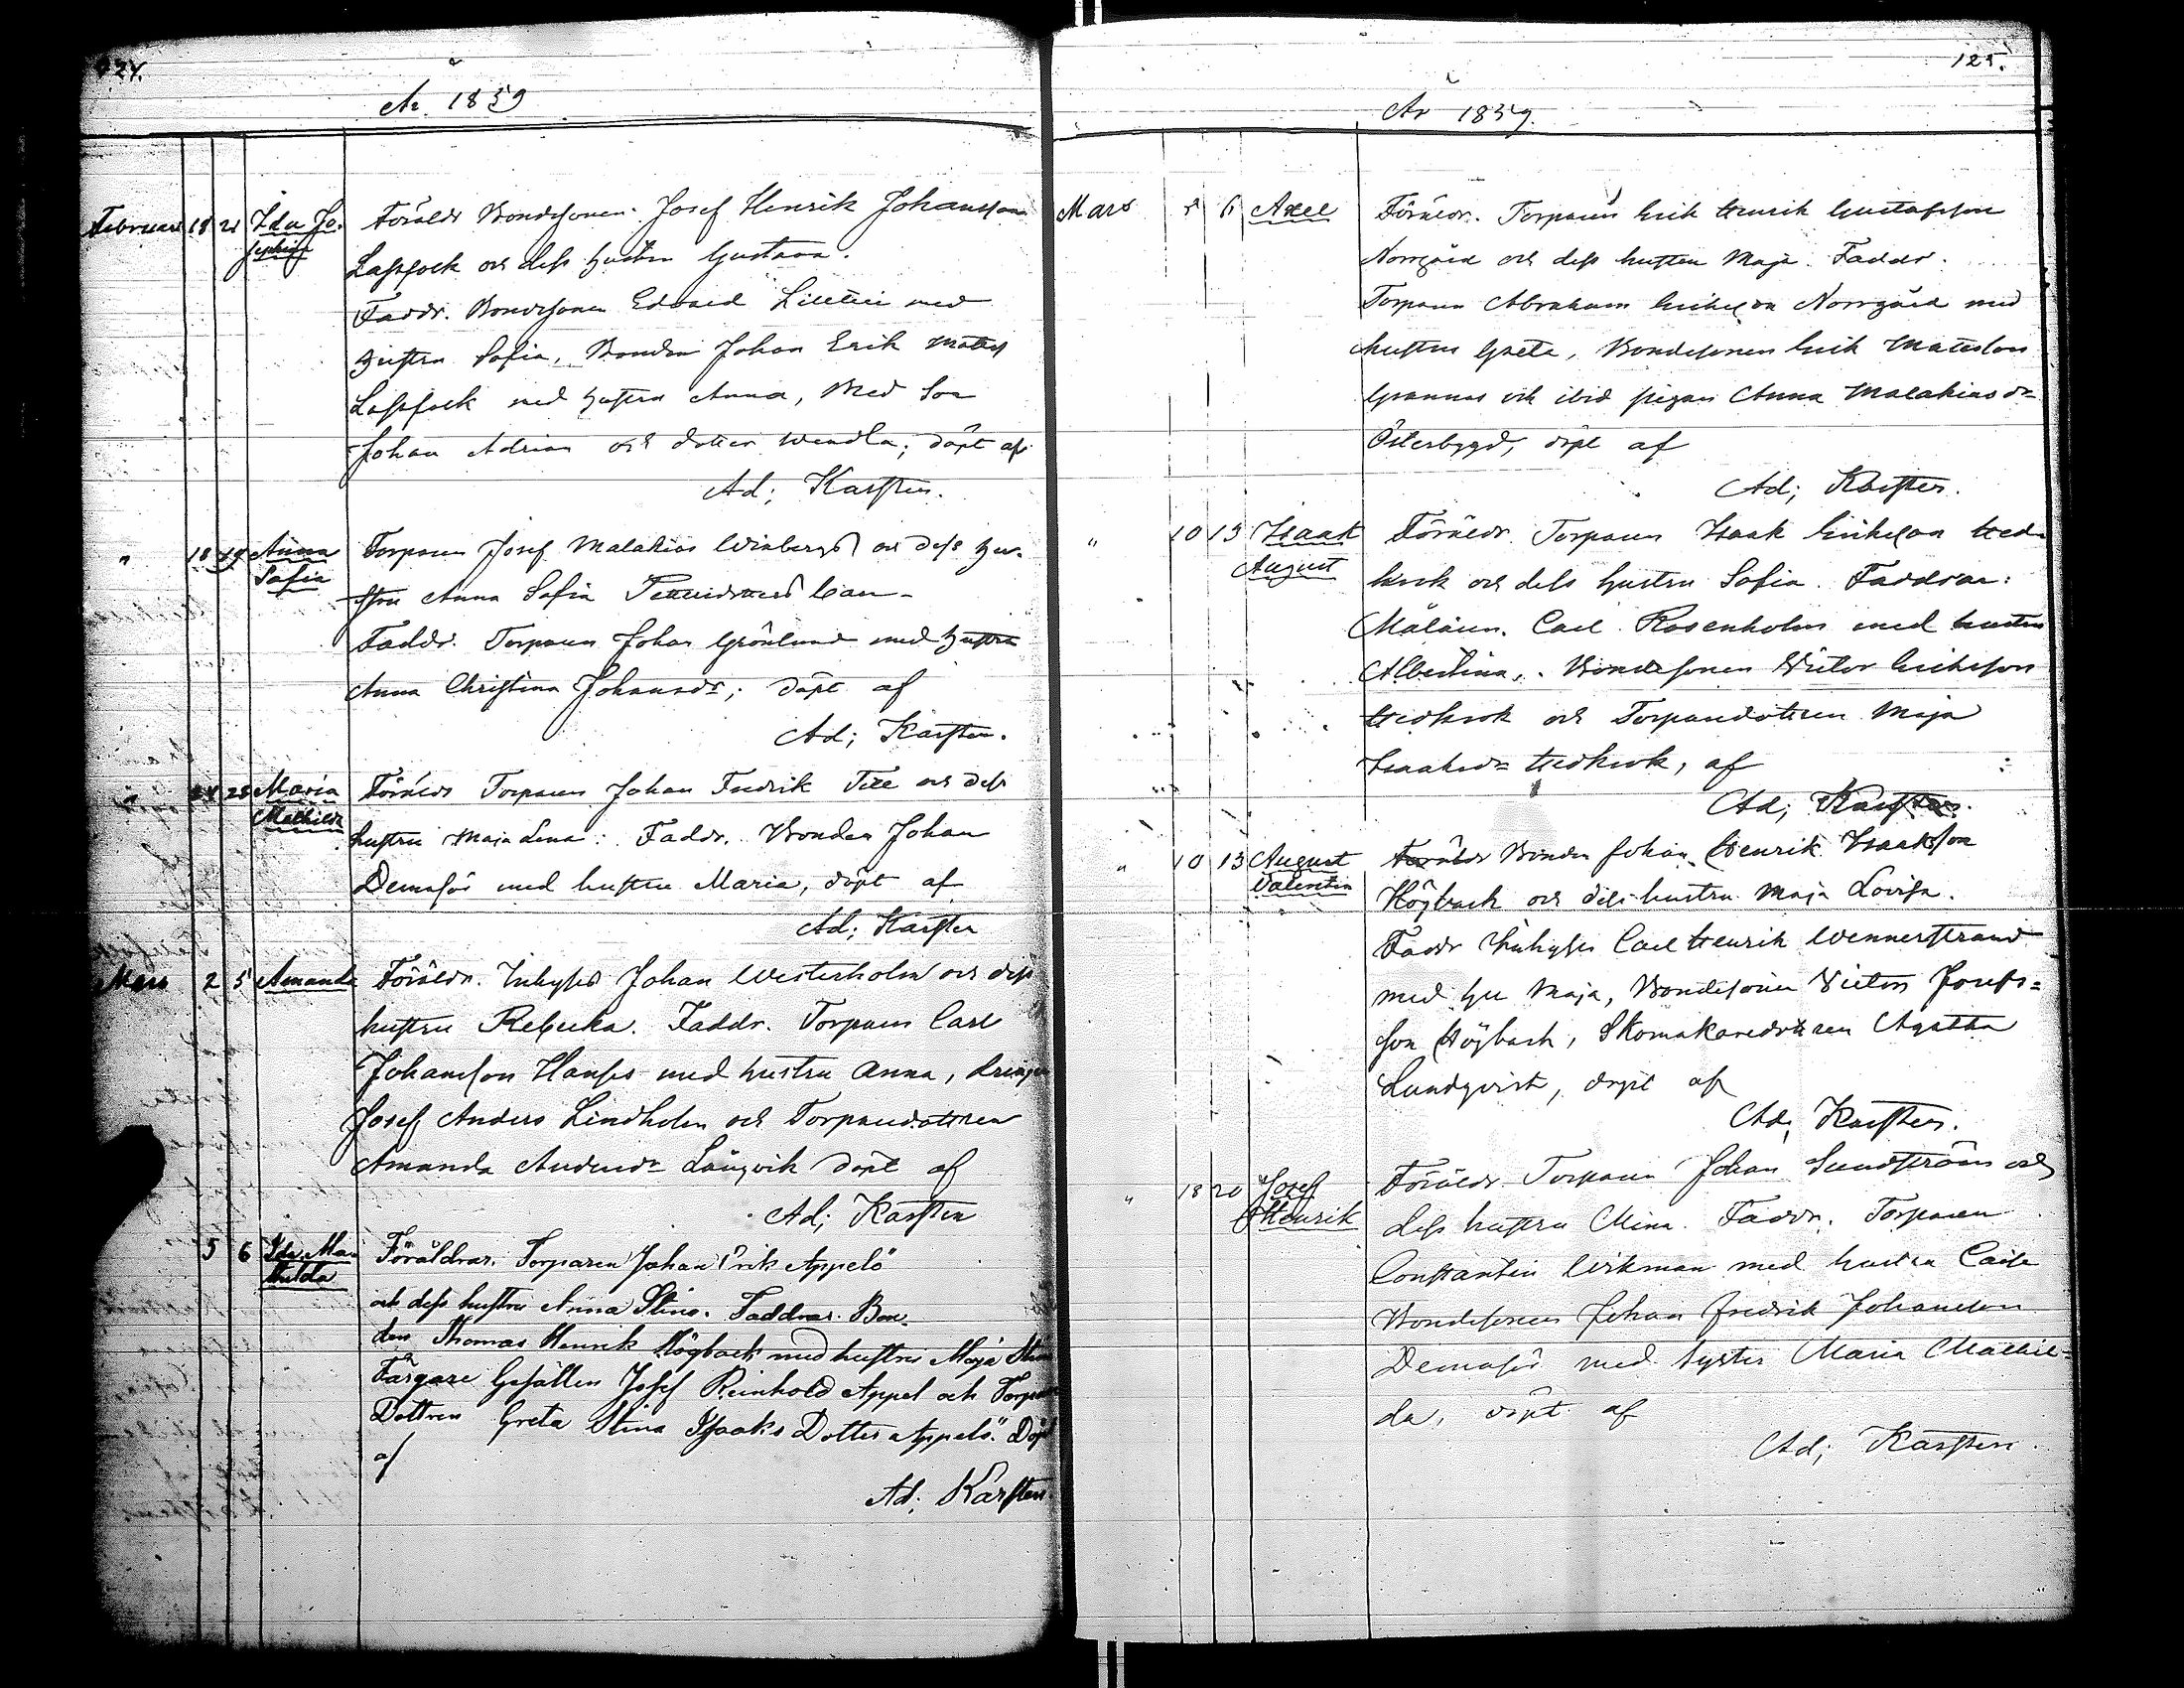 124.
År 1859
Februari 18 21 Ida Jo-
sephina
Föräldr Bondesonen Josef Henrik Johansson
Lassfolk och dess hustru Gustava.
Faddr. Bondsonen Edvard Lillttii med
hustru Sofia, Bonden Johan Erik Matts
Lassfolk med hustru Anna, Med Son
Johan Adrian och dotter Wendla; döpt af
Ad; Karsten.
" 18 19 Anna
Sofia
Torparen Josef Malakias Winberg och dess hu-
stru Anna Sofia
Faddr. Torparen Johan Grönlund med hustru
Anna Christina Johansdr; döpt af
Ad; Karsten.
" 24 25 Maria
Mathilda
Föräldr Torparen Johan Fredrik Till och dess
hustru Maja Lena: Faddr. Bonden Johan
Demasör med hustru Maria, döpt af
Ad; Karsten
Mars 2 5 Amanda
Föräldr. Inhyses Johan Westerholm och dess
hustru Rebecka. Faddr. Torparen Carl
Johansson Hanses med hustru Anna, drängen
Josef Anders Lindholm och Torparedottren
Amanda Andersdr Långvik döpt af
Ad; Karsten
5 6 Ida Ma-
thilda
Föräldrar. Torparen Johan Erik Appelö
och dess hustru Anna Stina. Faddrar. Bon-
den Thomas Henrik Högback med hustru Maja Stina
Färgare Gesällen Josef Reinhold Appel och Torpare
Dottren Greta Stina Isaaks Dotter Appelö. Döpt
af
Ad; Karsten.
125.
År 1859.
Mars 5 6 Axel
Föräldr. Torparen Erik Henrik Gustafsson
Norrgård och dess hustru Maja. Faddr.
Torparen Abraham Eriksson Norrgård med
hustru Greta, Bondesonen Erik Mattsson
Grannas och ibid pigan Anna Malakiasdr
Österbygd, döpt af
Ad; Karsten.
" 10 13 Isaak
August
Föräldr. Torparen Isaak Eriksson Hed-
krok och dess hustru Sofia. Faddrar:
Målaren. Carl Rosenholm med hustru
Albertina, Bondesonen Victor Eriksson
Hedkrok och Torparedottren Maja
Isaaksdr Hedkrok, af
Ad; Karsten.
" 10 13 August
Valentin
Föräldr Bonden Johan Henrik Isaksson
Högback och dess hustru Maja Lovisa.
Faddr Inhyses Carl Henrik Wennerstrand
med hu Maja, Bondesonen Victor Josefs-
son Högback, Skomakaredottren Agatha
Lundqvist, döpt af
Ad; Karsten.
" 18 20 Josef
Henrik
Föräldr. Torparen Johan Sundström och
dess hustru Mina. Faddr. Torparen
Constantin Wikman med hustru Caisa
Bondesonen Johan Fredrik Johansson
Demasör med syster Maria Mathil-
da, döpt af
Ad; Karsten.